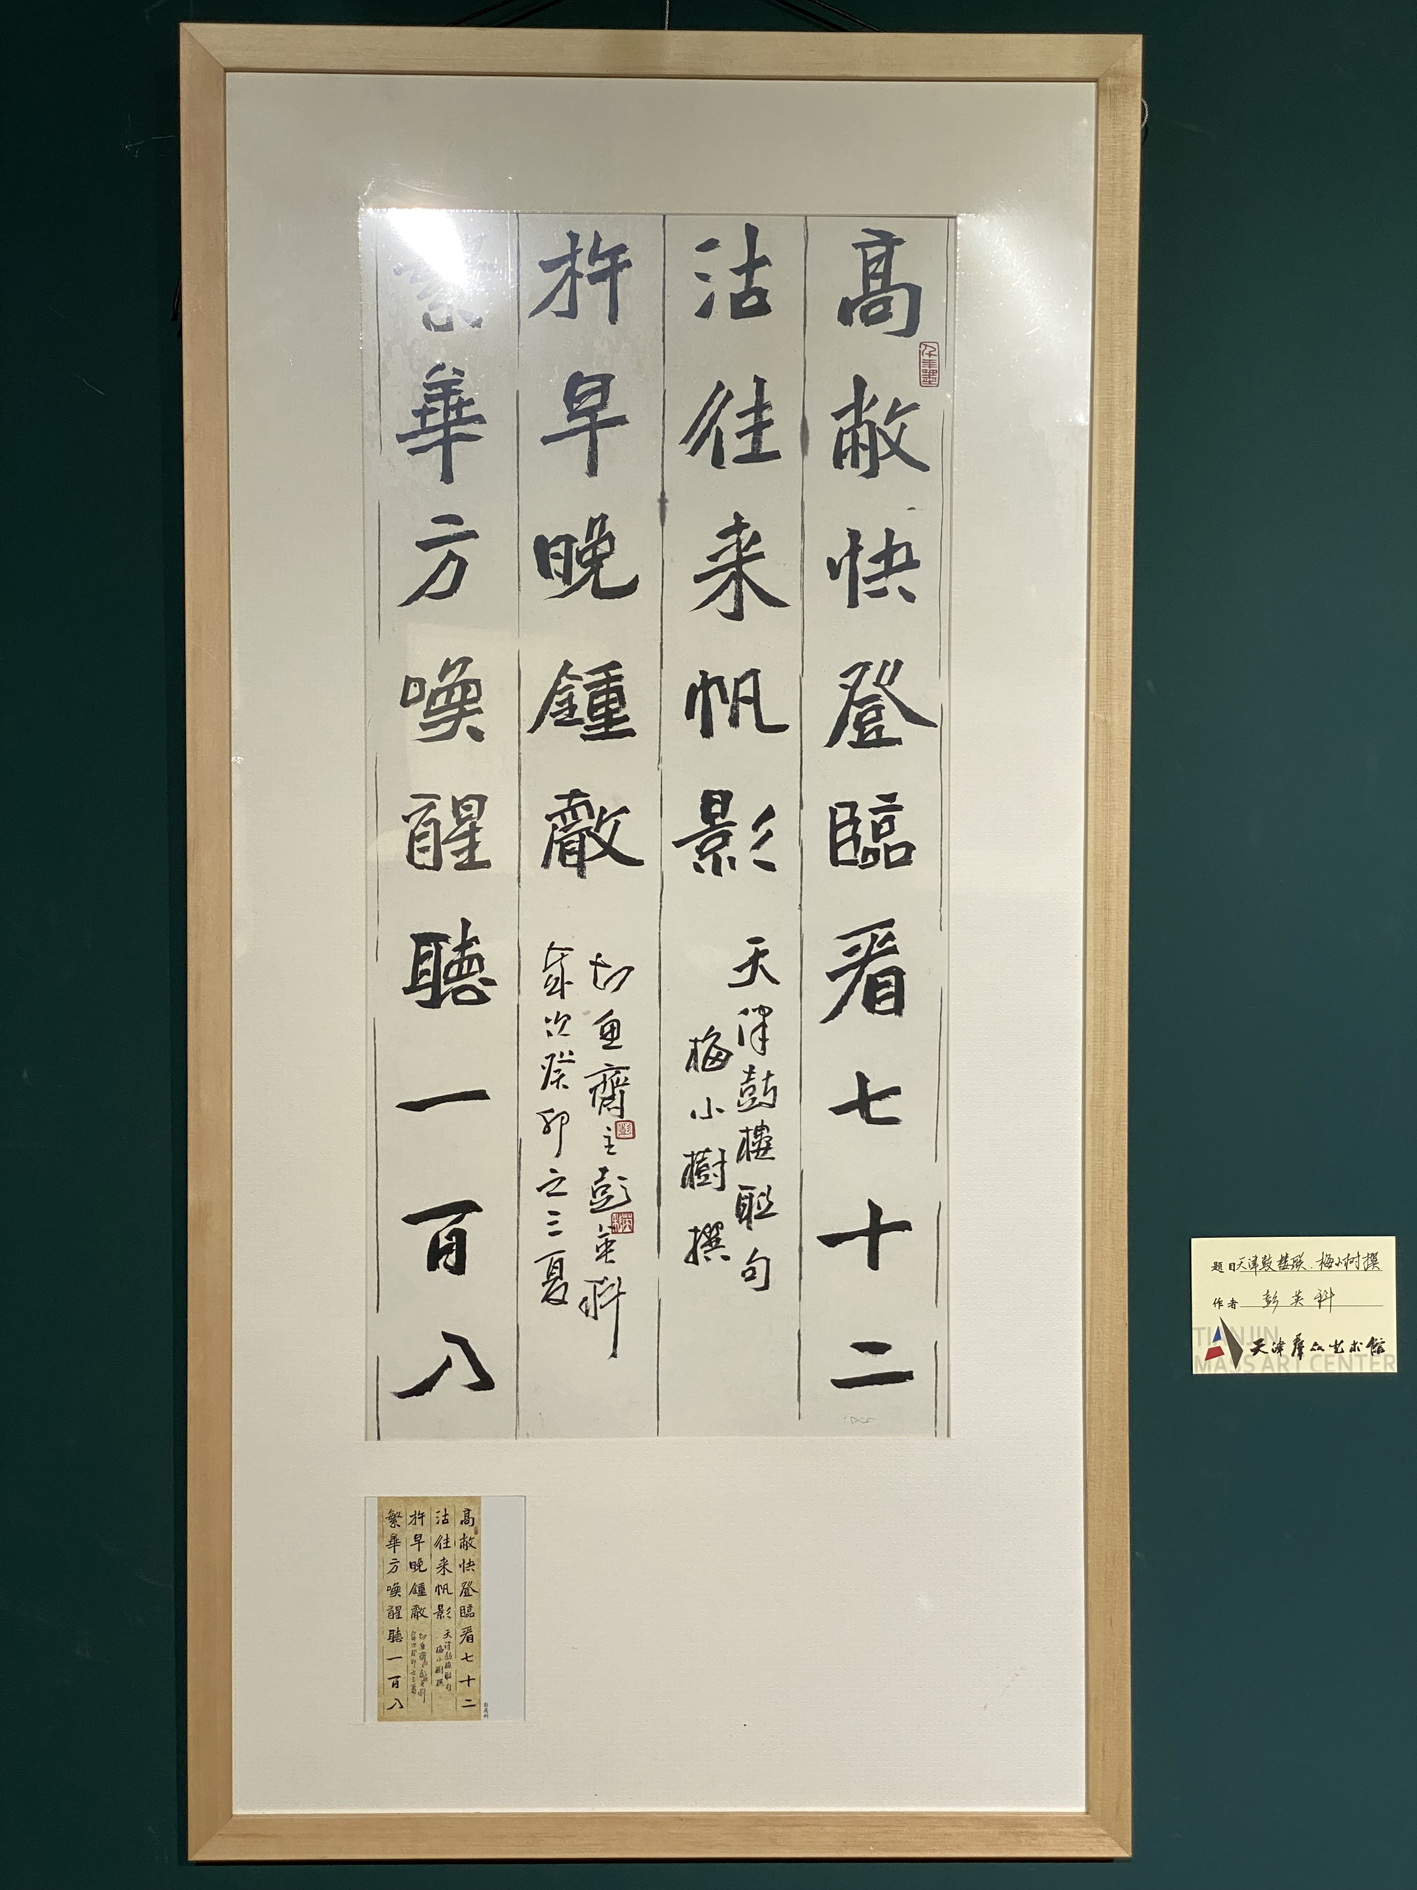 高敞快登臨看七十二
沽往来帆影
天津鼓樓联句
梅小樹撰
杵早晚鍾敲
切魚齋主彭英科
歲次癸卯之三夏
繁華方喚醒聽一百八
高敞快登臨看七十二
沽往来帆影
天津鼓樓联句
梅小樹撰
杵早晚鍾敲
繁華方喚醒聽一百八
彭英科
题目天津鼓楼联·梅小树撰
作者 彭英科
天津群众艺术馆
TIANJIN
MASS ART CENTER